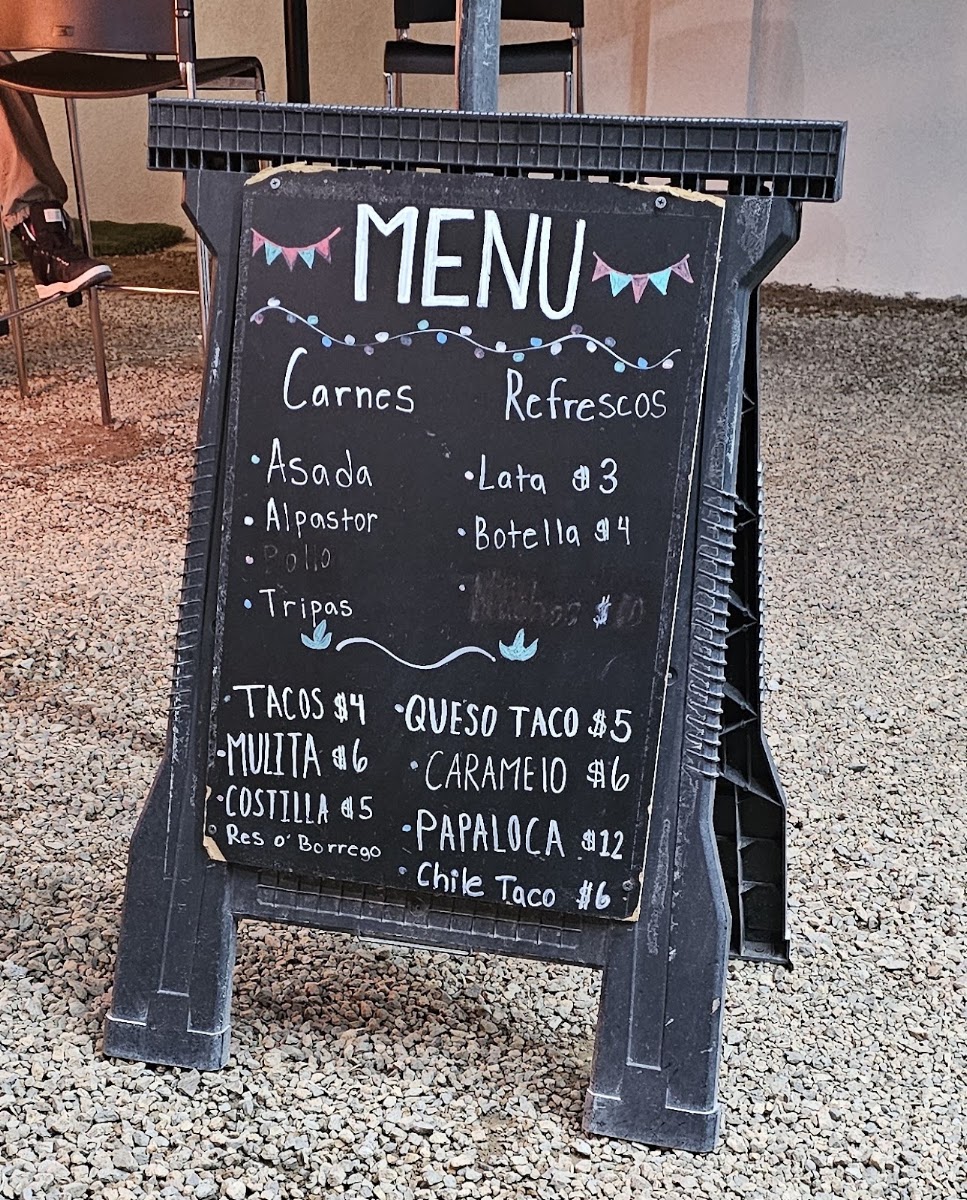 MENU
Carnes
• Asada
• Alpastor
• Pollo
• Tripas
Refrescos
• Lata $3
• Botella $4
• $10
• TACOS $4
• MULITA $6
• COSTILLA $5
Res o' Borrego
• QUESO TACO $5
• CARAMElO $6
• PAPALOCA $12
• Chile Taco $6